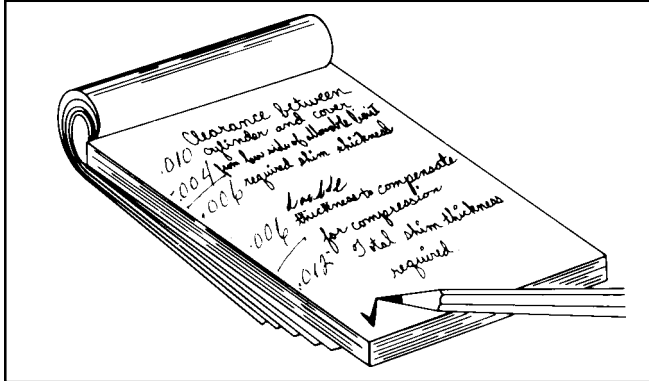 Clearance between
.010 cylinder and cover
-.004 from low side of allowable limit
.006 required shim thickness
double
.006 thickness to compensate
for compression
.012 Total shim thickness
required.